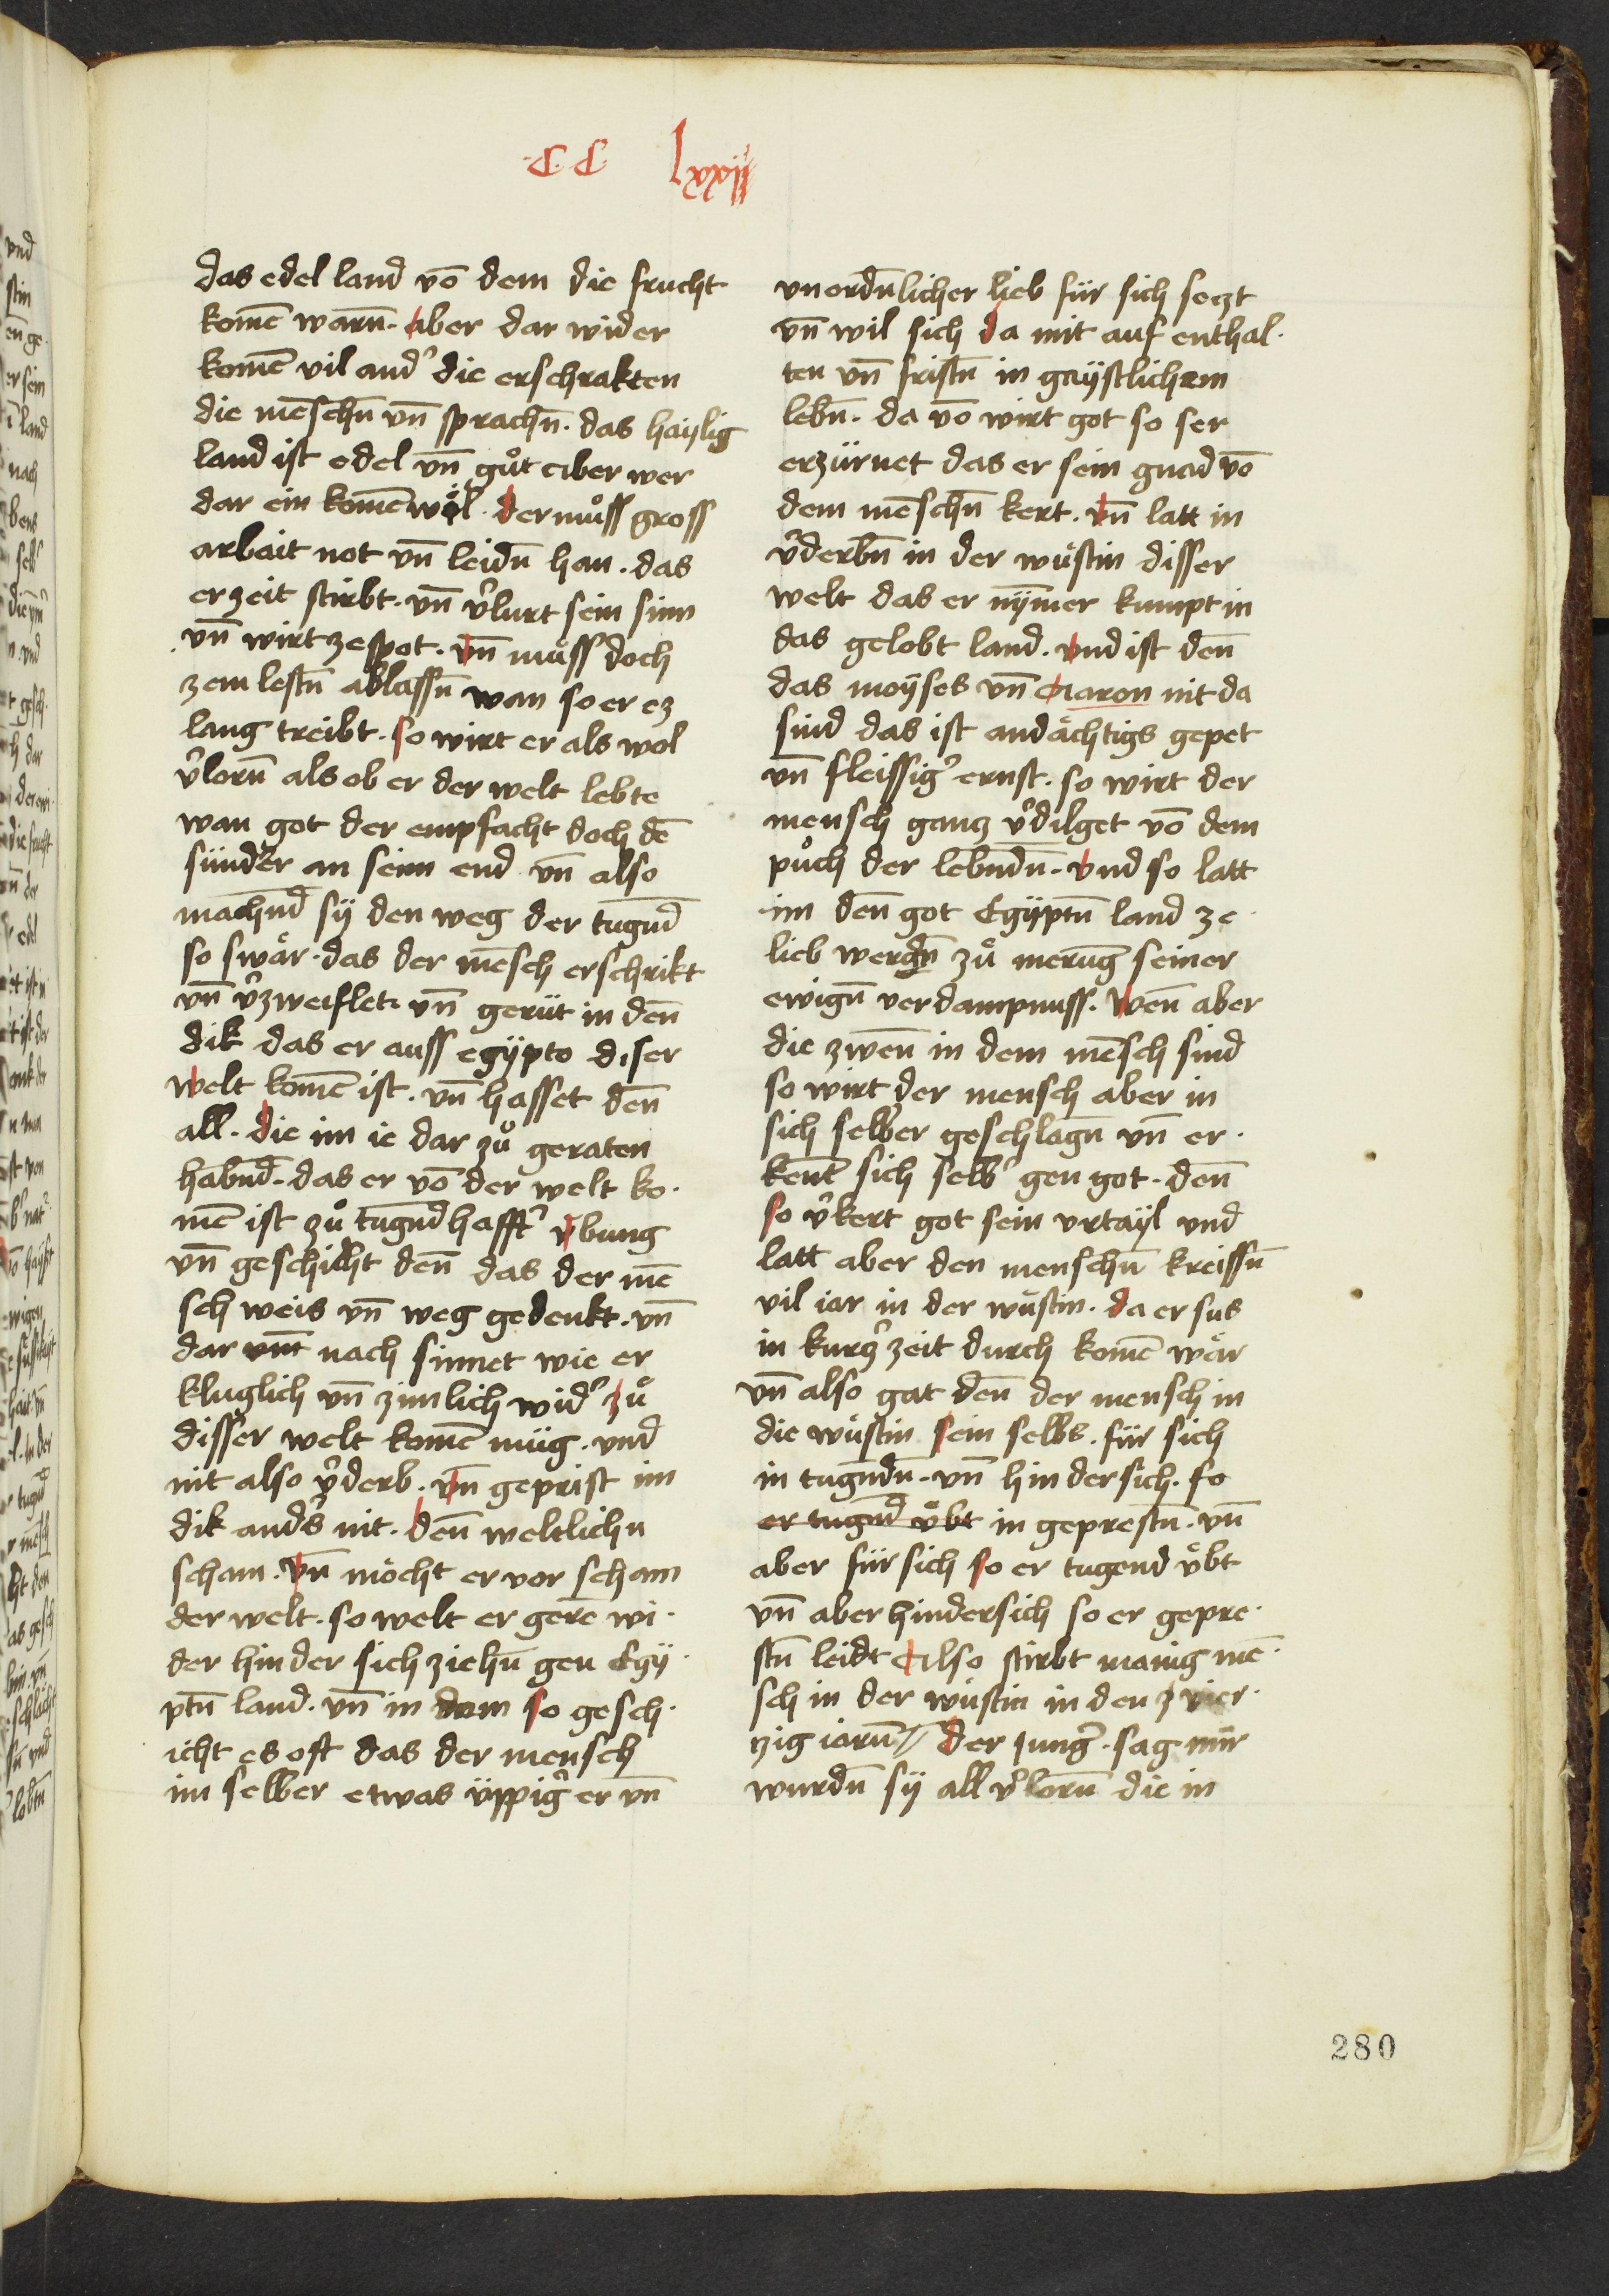 ·C·C· lxxiiij
das edel land vō dem die frucht
komē warn̄. aber dar wider
komē vil and᾽ die erschrakten
die mēschn̄ vn̄ sprachn̄. das haylig
land ist edel vn̄ guͦt aber wer
dar ein komē woͤl. der muͦss gross
arbait not vn̄ leidn̄ han. das
er zeit stirbt. vn̄ v᾽lurt sein sinn
vn̄ wirt ze spot. vn̄ muͤss doch
zem lestn̄ ablassn̄ wan so er ez
lang treibt. so wirt er als wol
v᾽lorn̄ als ob er der welt lebte
wan got der empfacht doch dē
sünder an seim end vn̄ also
machn̄d sy den weg der tugn̄d
so swaͤr. das der mēsch erschrikt
vn̄ v᾽zweiflet. vn̄ gerüt in den̄
dik das er auss egypto diser
welt komē ist. vn̄ hasset den̄
all. die im ie dar zuͦ geraten
habn̄d. das er vō der welt ko.
mē ist zuͦ tugn̄dhafft᾽ vͤbung
vn̄ geschicht den̄ das der mē
sch weis vn̄ weg gedenkt. vn̄
dar vm̄ nach sinnet wie er
kluglich vn̄ zimlich wid᾽ zuͦ
disser welt komē müg. vnd
nit also v᾽derb. vn̄ geprist im
dik and᾽s nit. den̄ weltlichn
scham. vn̄ moͤcht er vor scham
der welt. so welt er gerē wi.
der hinder sich ziehn̄ gen Egy.
ptn̄ land. vn̄ in dem so gesch.
icht es oft das der mensch
im selber etwas üppig᾽ er vn̄
vnordn̄licher lieb für sich seczt
vn̄ wil sich da mit auf enthal.
ten vn̄ fristn̄ in gaystlichem
lebn̄. da vō wirt got so ser
erzürnet das er sein gnad vō
dem mēschn̄ kert. vn̄ latt in
v᾽derbn̄ in der wuͤstin disser
welt das er nym̄er kumpt in
das gelobt land. vnd ist den̄
das moyses vn̄ Aaron nit da
sind das ist andaͤchtigs gepet
vn̄ fleissig᾽ ernst. so wirt der
mensch gancz v᾽dilget vō dem
puͦch der lebn̄dn̄. vnd so latt
im den̄ got Egyptn̄ land ze
lieb werdn̄ zuͦ merūg seiner
ewign̄ verdampnuss. Wen̄ aber
die zwen̄ in dem mēsch sind
so wirt der mensch aber in
sich selber geschlagn̄ vn̄ er.
kent̄ sich selb᾽ gen got. den̄
so v᾽kert got sein vrtayl vnd
latt aber den menschn̄ kreissn̄
vil iar in der wuͤstin. da er sus
in kurcz᾽ zeit durch komē waͤr
vn̄ also gat den̄ der mensch in
die wuͤstin sein selbs. für sich
in tugn̄dn̄. vn̄ hinder sich. so
er tugn̄d vͤbt in geprestn̄. vn̄
aber für sich so er tugend vͤbt
vn̄ aber hindersich so er gepre.
stn̄ leidt Also stirbt manig mē.
sch in der wuͤstin in den vier.
zig iarn̄ Der Jung᾽. sag mir
wurdn̄ sy all v᾽lorn̄ die in
280